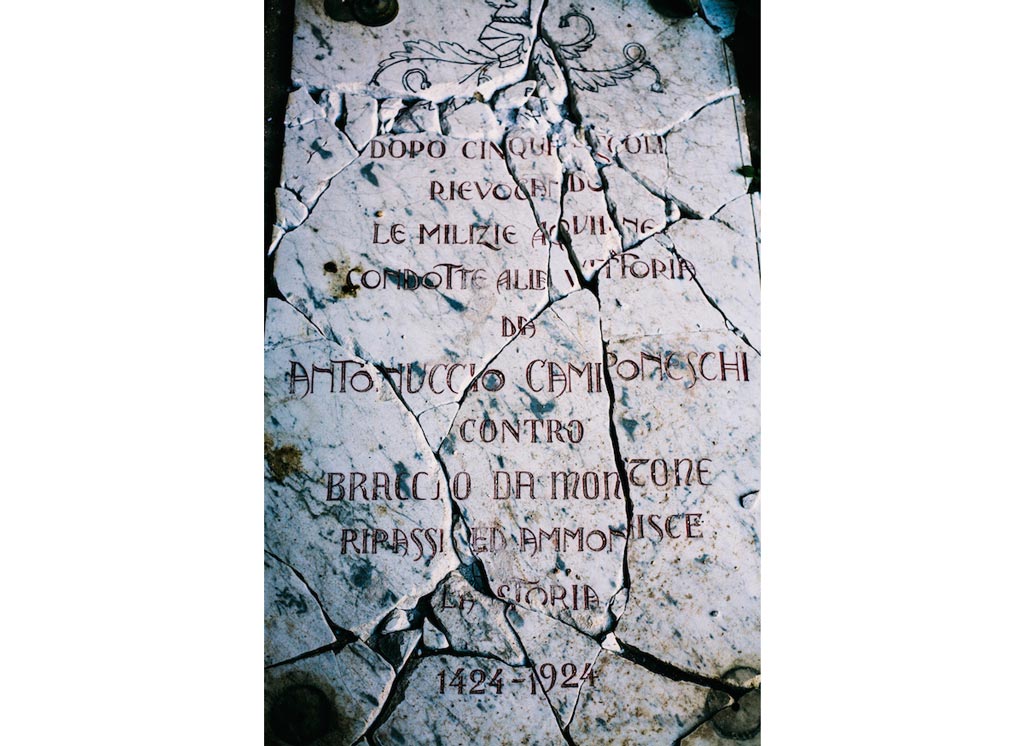 DOPO CINQUE SECOLI
RIEVOCANDO
LE MILIZIE AQUILANE
CONDOTTE ALLA VITTORIA
DA
ANTONUCCIO CAMPONESCHI
CONTRO
BRACCIO DA MONTONE
RIPASSI ED AMMONISCE
LA STORIA
1424-1924